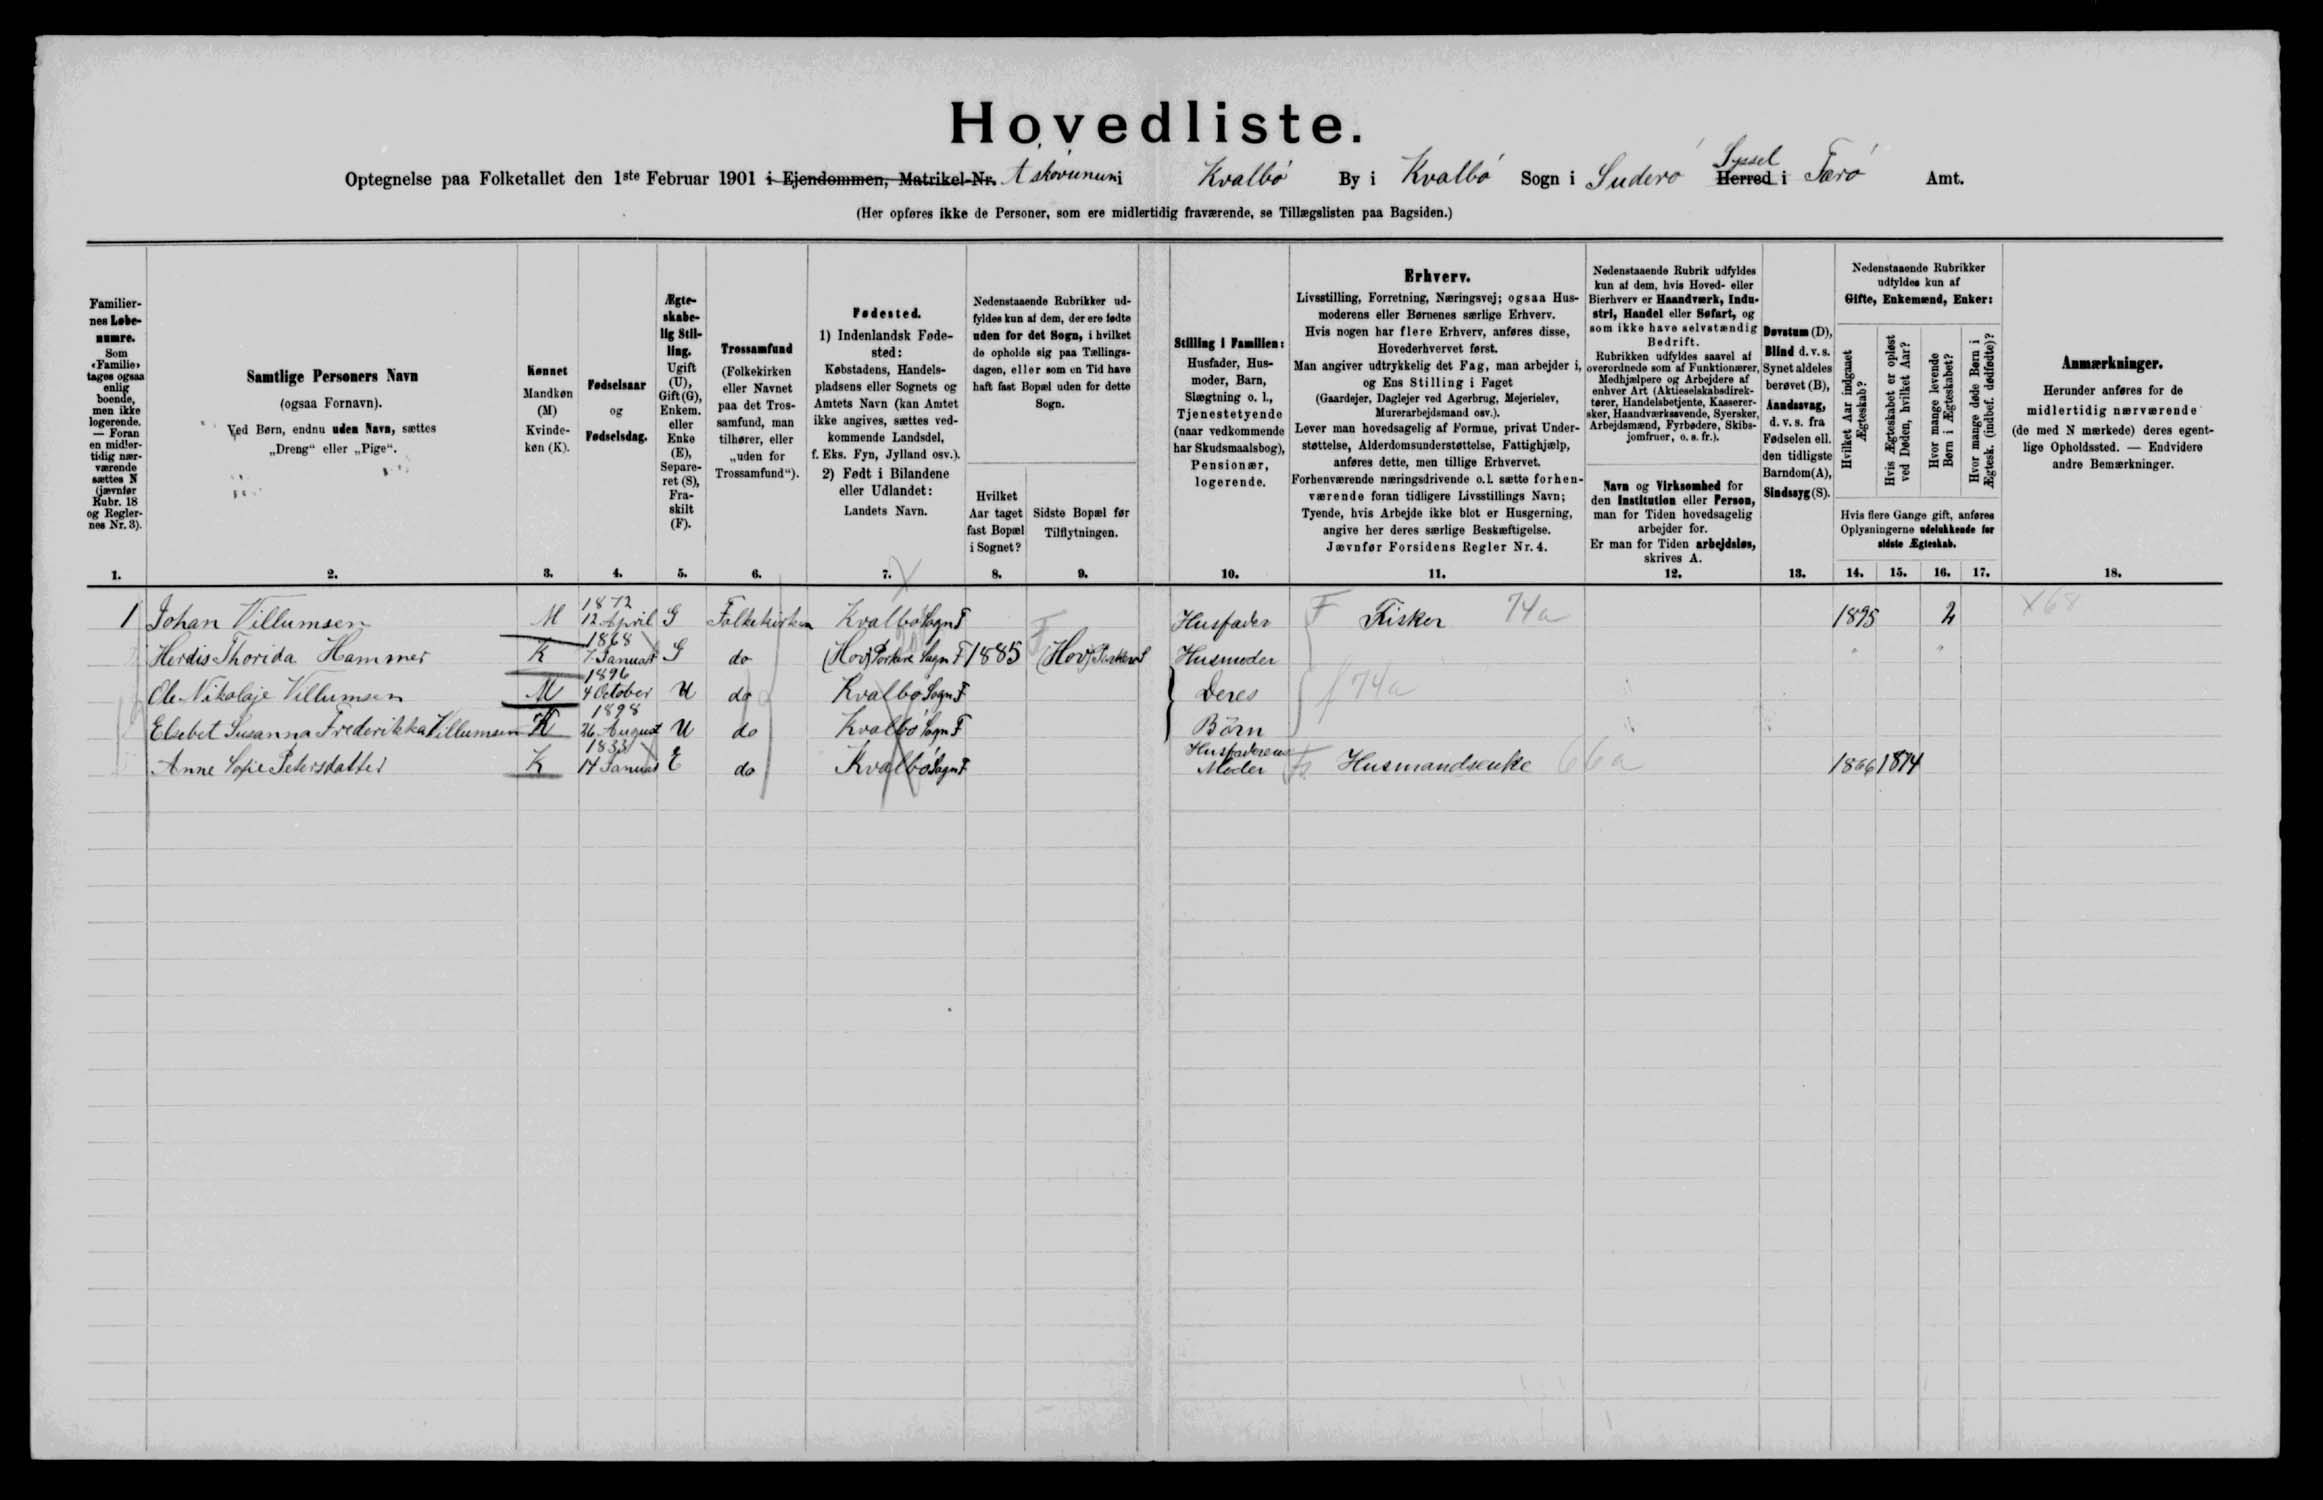 Hovedliste.
Optegnelse paa Folketallet den 1ste Februar 1901 i Ejendommen, Matrikel-Nr. A skovununi Kvalbø By i Kvalbø Sogn i Suderø Syssel Herred i Færø Amt.
(Her opføres ikke de Personer, som ere midlertidig fraværende, se Tillægslisten paa Bagsiden.)
Familiernes Løbenumre.
Som «Familie» tages ogsaa enlig boende, men ikke logerende. — Foran en midlertidig nærværende sættes N (jævnfør Rubr. 18 og Reglernes Nr. 3).
Samtlige Personers Navn
(ogsaa Fornavn).
Ved Børn, endnu uden Navn, sættes
„Dreng“ eller „Pige“.
Kønnet
Mandkøn (M) Kvindekøn (K).
Fødselsaar og Fødselsdag.
Ægteskabelig Stilling.
Ugift (U), Gift (G), Enkem. eller Enke (E), Separeret (S), Fraskilt (F).
Trossamfund
(Folkekirken eller Navnet paa det Trossamfund, man tilhører, eller „uden for Trossamfund“).
Fødested.
1) Indenlandsk Fødested:
Købstadens, Handelspladsens eller Sognets og Amtets Navn (kan Amtet ikke angives, sættes vedkommende Landsdel, f. Eks. Fyn, Jylland osv.).
2) Født i Bilandene eller Udlandet:
Landets Navn.
Nedenstaaende Rubrikker udfyldes kun af dem, der ere fødte uden for det Sogn, i hvilket de opholde sig paa Tællingsdagen, eller som en Tid have haft fast Bopæl uden for dette Sogn.
Hvilket Aar taget fast Bopæl i Sognet?
Sidste Bopæl før Tilflytningen.
Stilling i Familien:
Husfader, Husmoder, Barn, Slægtning o. l., Tjenestetyende (naar vedkommende har Skudsmaalsbog), Pensionær, logerende.
Erhverv.
Livsstilling, Forretning, Næringsvej; ogsaa Husmoderens eller Børnenes særlige Erhverv.
Hvis nogen har flere Erhverv, anføres disse, Hovederhvervet først.
Man angiver udtrykkelig det Fag, man arbejder i, og Ens Stilling i Faget
(Gaardejer, Daglejer ved Agerbrug, Mejerielev, Murerarbejdsmand osv.).
Lever man hovedsagelig af Formue, privat Understøttelse, Alderdomsunderstøttelse, Fattighjælp, anføres dette, men tillige Erhvervet.
Forhenværende næringsdrivende o. l. sætte forhenværende foran tidligere Livsstillings Navn;
Tyende, hvis Arbejde ikke blot er Husgerning, angive her deres særlige Beskæftigelse.
Jævnfør Forsidens Regler Nr. 4.
Nedenstaaende Rubrik udfyldes kun af dem, hvis Hoved- eller Bierhverv er Haandværk, Industri, Handel eller Søfart, og som ikke have selvstændig Bedrift.
Rubrikken udfyldes saavel af overordnede som af Funktionærer, Medhjælpere og Arbejdere af enhver Art (Aktieselskabsdirektører, Handelsbetjente, Kasserersker, Haandværkssvende, Syersker, Arbejdsmænd, Fyrbødere, Skibsjomfruer, o. s. fr.).
Navn og Virksomhed for den Institution eller Person, man for Tiden hovedsagelig arbejder for.
Er man for Tiden arbejdsløs, skrives A.
Døvstum (D), Blind d. v. s. Synet aldeles berøvet (B), Aandssvag, d. v. s. fra Fødselen ell. den tidligste Barndom (A), Sindssyg (S).
Nedenstaaende Rubrikker udfyldes kun af
Gifte, Enkemænd, Enker:
Hvilket Aar indgaaet Ægteskab?
Hvis Ægteskabet er opløst ved Døden, hvilket Aar?
Hvor mange levende Børn i Ægteskabet?
Hvor mange døde Børn i Ægtesk. (indbef. dødfødte)?
Hvis flere Gange gift, anføres Oplysningerne udelukkende for sidste Ægteskab.
Anmærkninger.
Herunder anføres for de midlertidig nærværende (de med N mærkede) deres egentlige Opholdssted. — Endvidere andre Bemærkninger.
1. 2. 3. 4. 5. 6. 7. 8. 9. 10. 11. 12. 13. 14. 15. 16. 17. 18.
1 Johan Villumsen M 1872 12 April G Folkekirken Kvalbø Sogn F Husfader F Fisker 74a 1895 2 X68
Herdis Thorida Hammer K 1868 7 Januar G do (Hov) Porkere Sogn F 1885 (Hov) Porkere S Husmoder " "
Ole Nikolaje Villumsen M 1896 4 October U do Kvalbø Sogn F Deres f 74a
Elsebet Susanna Frederikka Villumsen K 1898 26 August U do Kvalbø Sogn F Børn
Anne Sofie Petersdatter K 1833 14 Januar E do Kvalbø Sogn F Husfaderens Moder Husmandsenke 66a 1866 1874